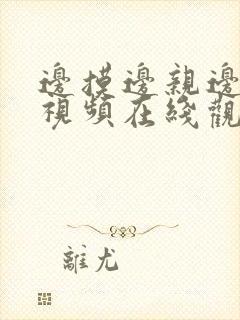 邊摸邊親邊
視頻在綫觀
離尤